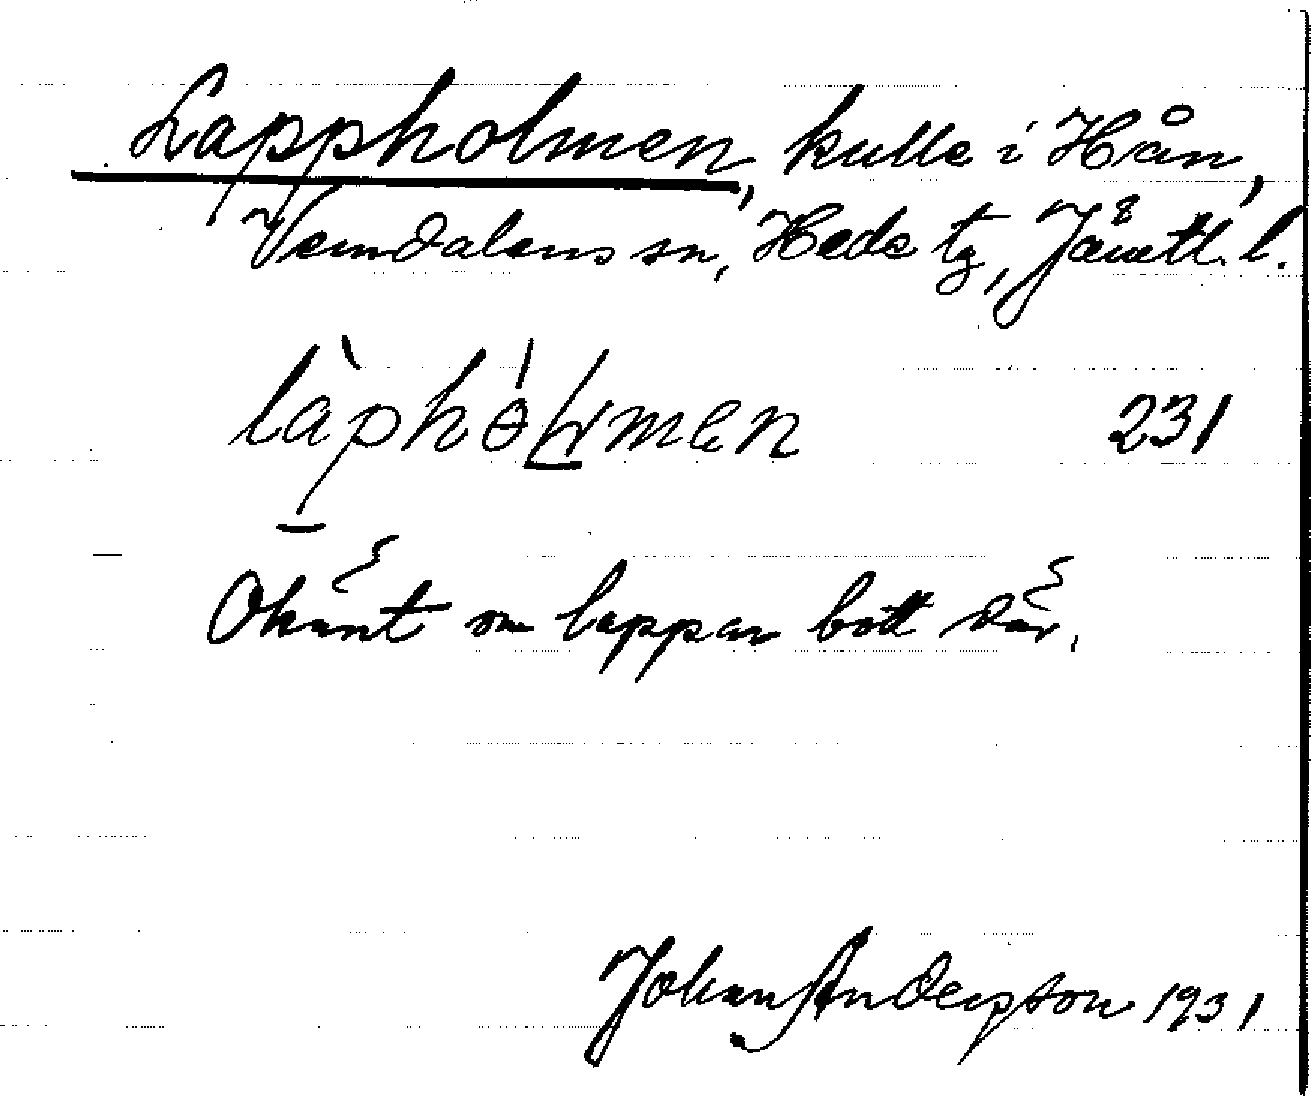 Lappholmen, kulle i Hån,
Vemdalens sn, Hede tg, Jämtl. l.
làphòɫmen 231
Okänt om lappar bott där.
Johan Andersson 1931